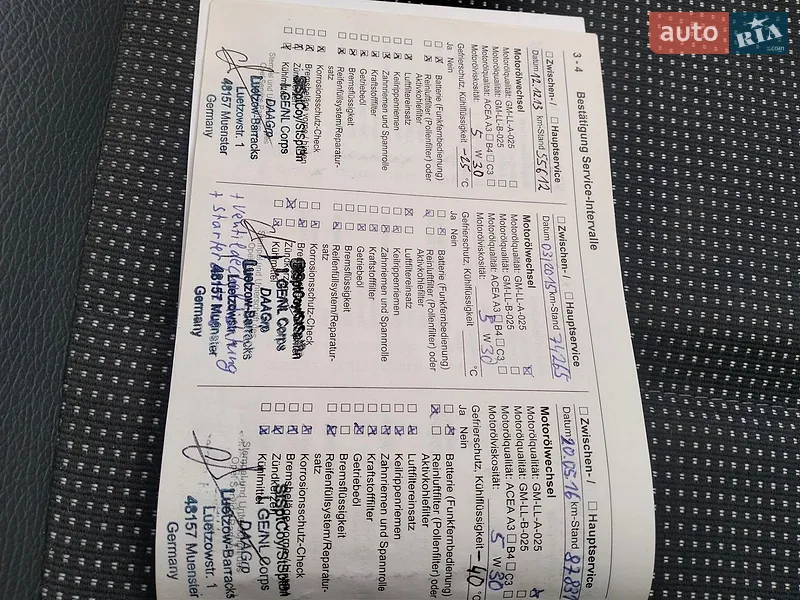 auto RIA .com
3 - 4 Bestätigung Service-Intervalle
Zwischen- / Hauptservice
Datum 12.12.13 km-Stand 55612
Motorölwechsel
Motorölqualität: GM-LL-A-025
Motorölqualität: GM-LL-B-025
Motorölqualität: ACEA A3 B4 C3
Motorölviskosität: 5 W 30
Gefrierschutz, Kühlflüssigkeit -25 °C
Ja Nein
Batterie (Funkfernbedienung)
Reinluftfilter (Pollenfilter) oder
Aktivkohlefilter
Luftfiltereinsatz
Keilrippenriemen
Zahnriemen und Spannrolle
Kraftstofffilter
Getriebeöl
Bremsflüssigkeit
Reifenfüllsystem/Reparatur-
satz
Korrosionsschutz-Check
GE/NL Corps
DAAGrp
Luetzow-Barracks
Luetzowstr. 1
48157 Muenster
Germany
Zwischen- / Hauptservice
Datum 03/2015 km-Stand 74265
Motorölwechsel
Motorölqualität: GM-LL-A-025
Motorölqualität: GM-LL-B-025
Motorölqualität: ACEA A3 B4 C3
Motorölviskosität: 5 W 30
Gefrierschutz, Kühlflüssigkeit °C
Ja Nein
Batterie (Funkfernbedienung)
Reinluftfilter (Pollenfilter) oder
Aktivkohlefilter
Luftfiltereinsatz
Keilrippenriemen
Zahnriemen und Spannrolle
Kraftstofffilter
Getriebeöl
Bremsflüssigkeit
Reifenfüllsystem/Reparatur-
satz
Korrosionsschutz-Check
Kühlmittel
GE/NL Corps
DAAGrp
Luetzow-Barracks
48157 Muenster
Germany
Zwischen- / Hauptservice
Datum 20.05.16 km-Stand
Motorölwechsel
Motorölqualität: GM-LL-A-025
Motorölqualität: GM-LL-B-025
Motorölqualität: ACEA A3 B4 C3
Motorölviskosität: 5 W 30
Gefrierschutz, Kühlflüssigkeit -40 °C
Ja Nein
Batterie (Funkfernbedienung)
Reinluftfilter (Pollenfilter) oder
Aktivkohlefilter
Luftfiltereinsatz
Keilrippenriemen
Zahnriemen und Spannrolle
Kraftstofffilter
Getriebeöl
Bremsflüssigkeit
Reifenfüllsystem/Reparatur-
satz
Korrosionsschutz-Check
Kühlmittel
GE/NL Corps
DAAGrp
Luetzow-Barracks
Luetzowstr. 1
48157 Muenster
Germany